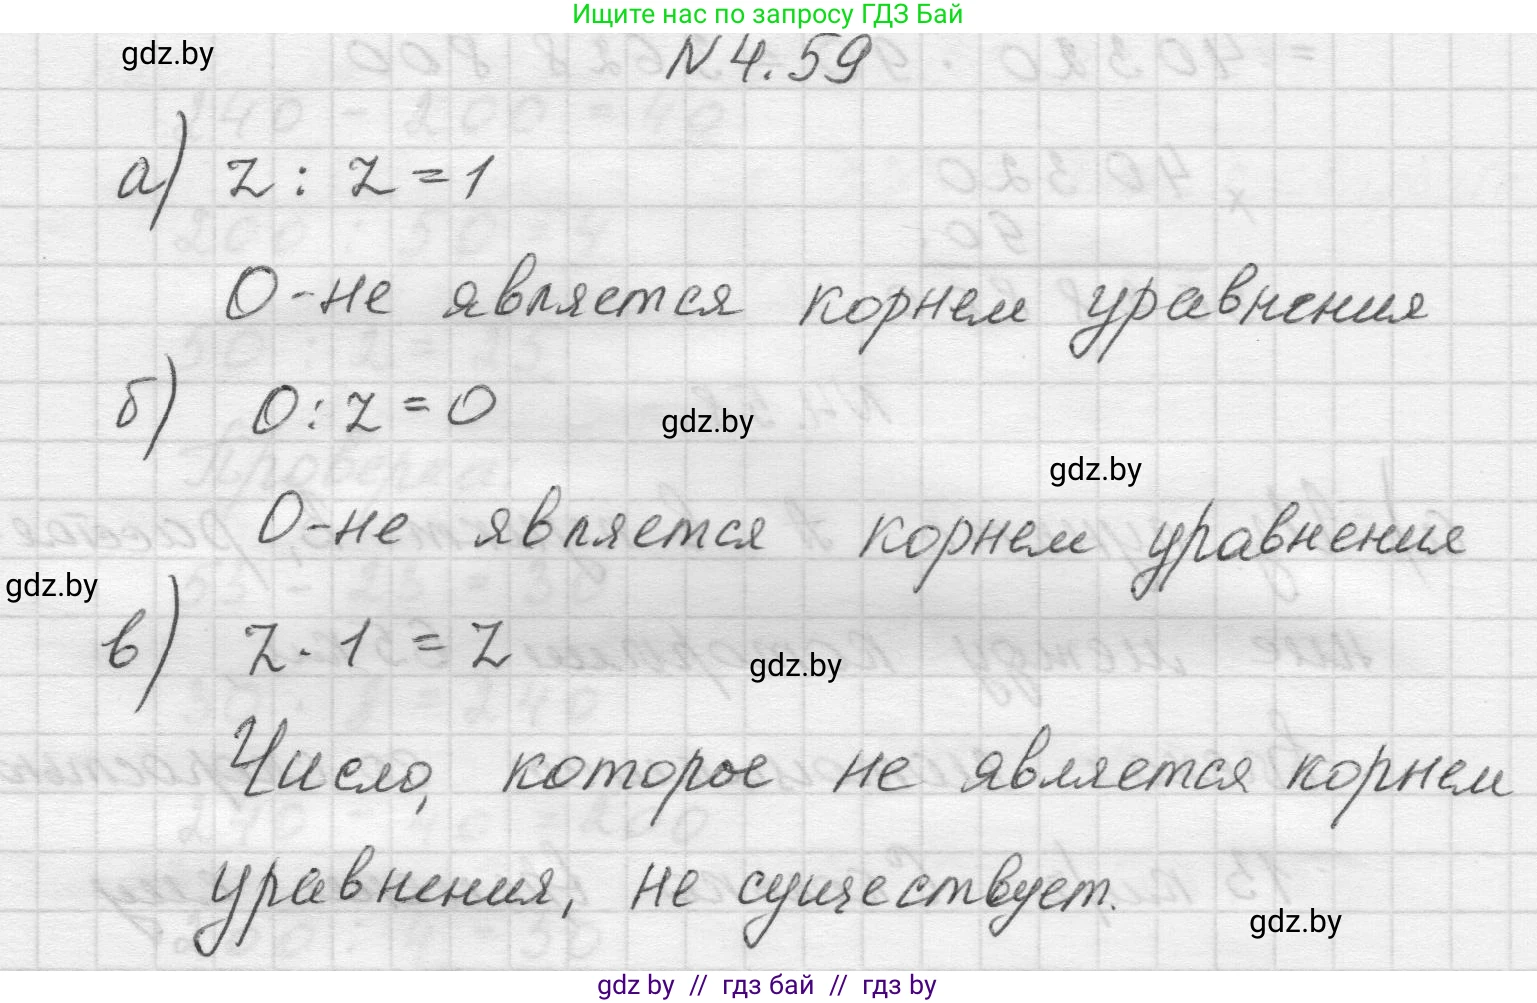 Ищите нас по запросу ГДЗ Бай
gdz.by
N 4.59
а) z : z = 1
0 - не является корнем уравнения
б) 0 : z = 0
gdz.by
gdz.by
0 - не является корнем уравнения
gdz.by
в) z · 1 = z
gdz.by
Число, которое не является корнем
уравнения, не существует.
gdz.by
gdz by // гдз бай // гдз by